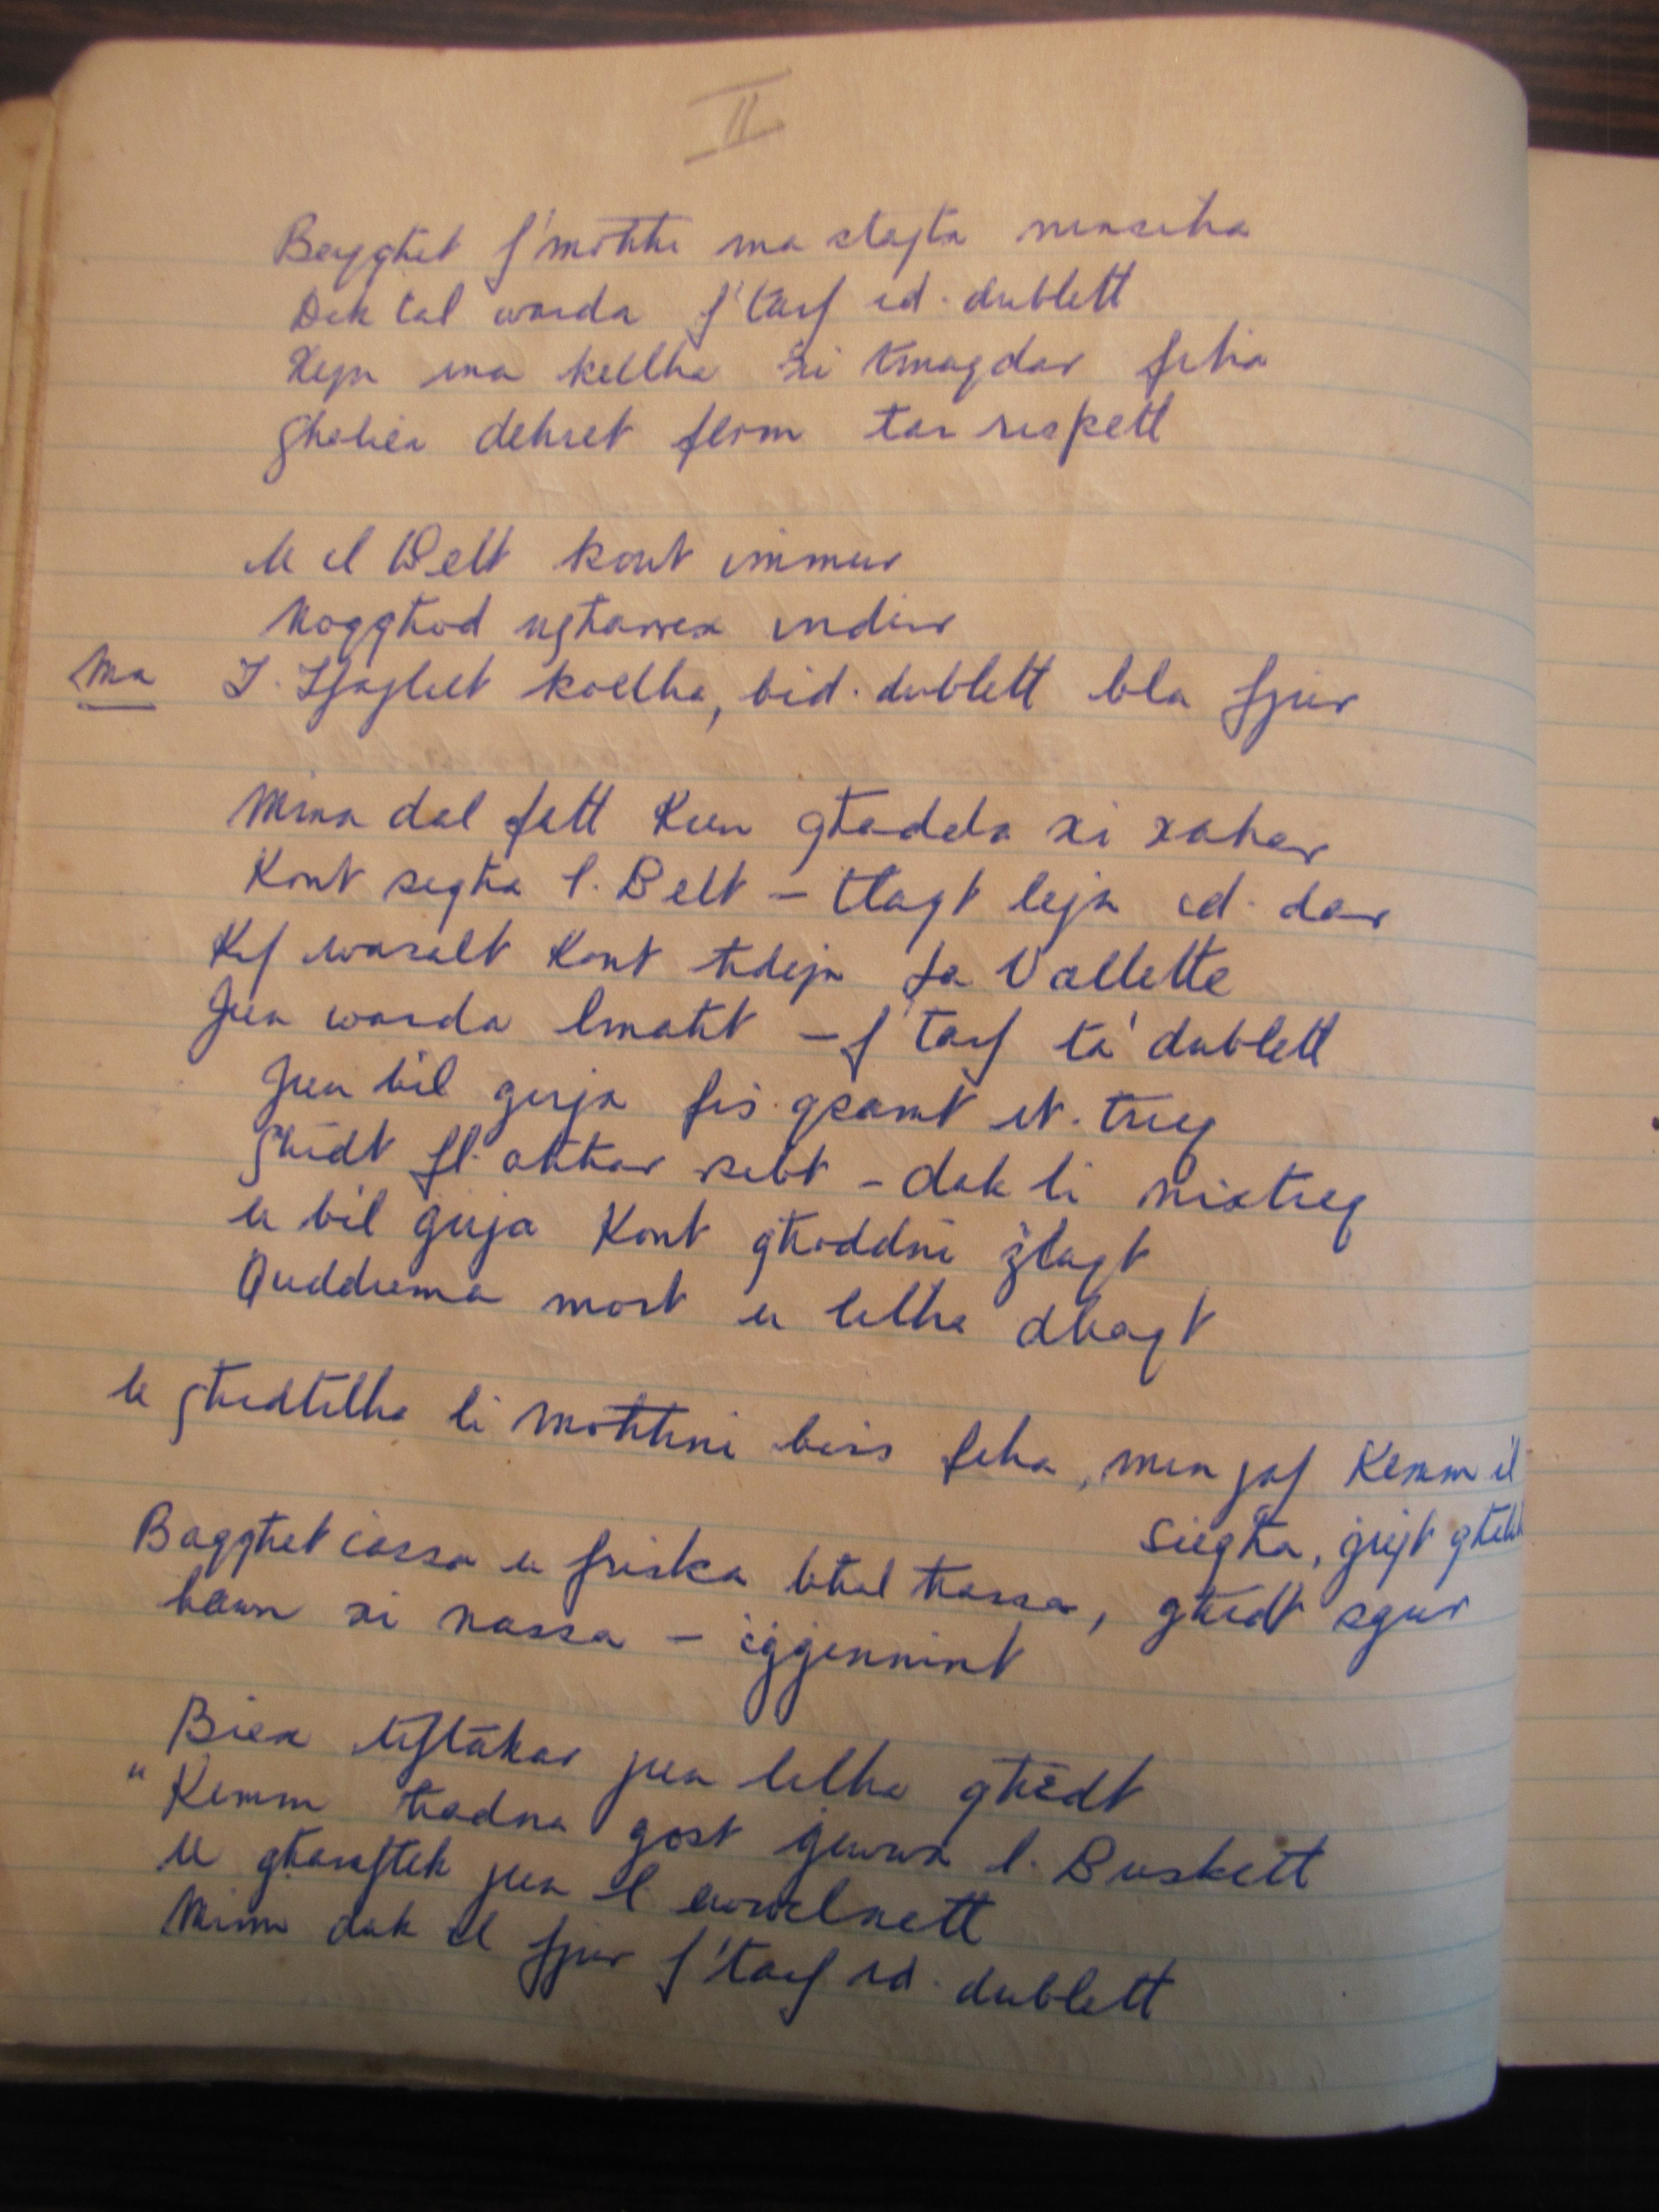 II
Baqghet f'mohhi ma stajta ninsiha
Dik tal warda f'tarf id-dublett
Xejn ma kellha xi tmaqdar fiha
Ghaliex dehret ferm tar-rispett
U il Belt kont immur
Noqghod ngharrex indur
Ma
kollha, bid-dublett bla fjur
Minn dal fatt Kien ghadda xi xahar
Kont sejjha l-Belt - tlaqt lejn id-dar
Kif wasalt Kont hdejn La Vallette
Jien warda lmaht - f'tarf ta' dublett
Jien bil girja fis qsamt it-triq
Ghidt fl-ahhar sibt - dak li nixtieq
U bil girja Kont ghoddni żlaqt
Quddiema mort u lilha dhaqt
U ghedtilha li mohhni biss fiha, min jaf Kemm il
siegha, ġejt ghalik
Baqghet iassa u friska bhal hassa, ghidt sgur
hawn xi nassa - iġġennint
Biex tiftakar jien lilha ghedt
"Kemm hadna gost ġewwa l-Buskett
U gharaftek jien l ewwelnett
Minn dak il fjur f'tarf id-dublett